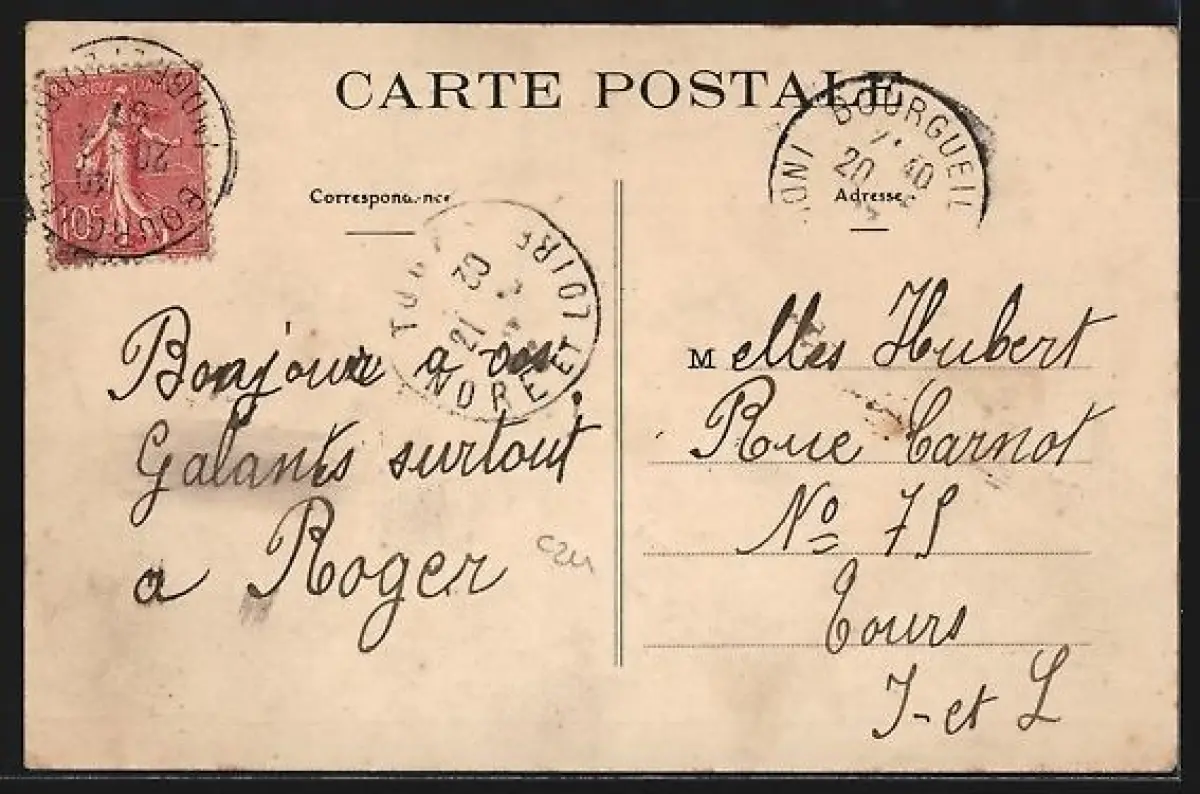 CARTE POSTALE
Correspondance
Adresse
BOURGUEIL
20
40
BOURGUEIL
20
10c
TOURS
INDRE ET LOIRE
21
30
Bonjour a vos
Galants surtout
a Roger
Melles Hubert
Rue Carnot
No 75
Tours
I-et L